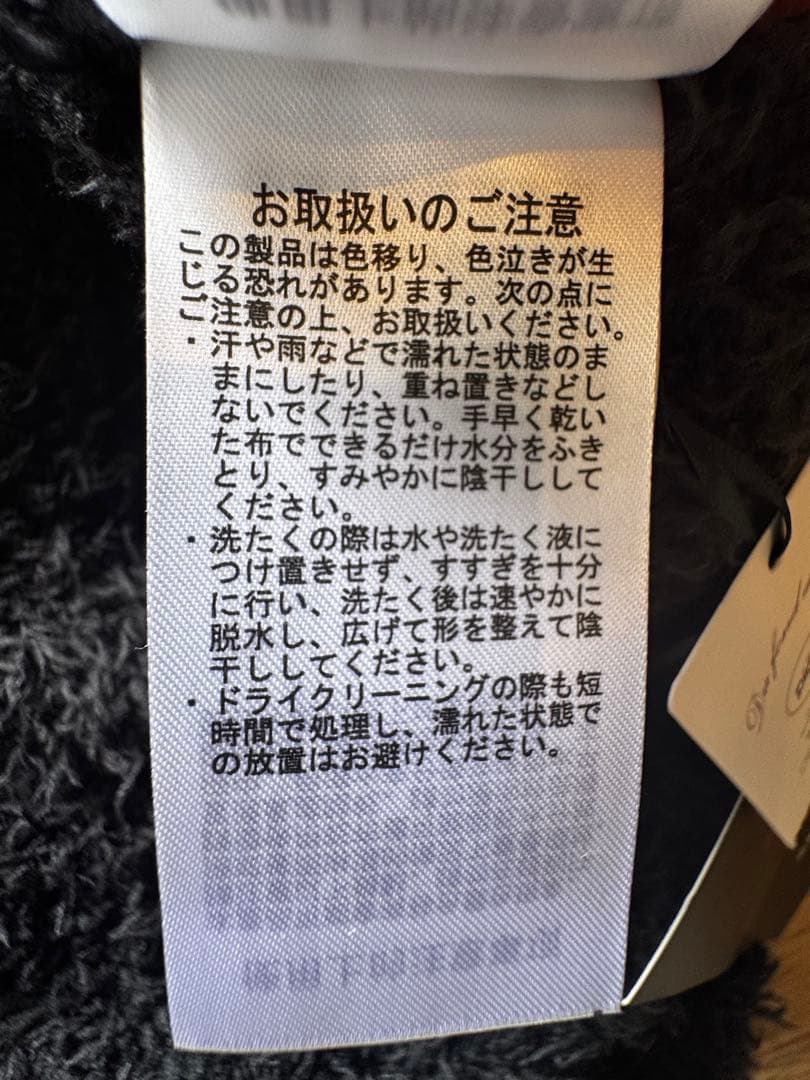 お取扱いのご注意
この製品は色移り、色泣きが生
じる恐れがあります。次の点に
ご注意の上、お取扱いください。
・汗や雨などで濡れた状態のま
まにしたり、重ね置きなどし
ないでください。手早く乾い
た布でできるだけ水分をふき
とり、すみやかに陰干しして
ください。
・洗たくの際は水や洗たく液に
つけ置きせず、すすぎを十分
に行い、洗たく後は速やかに
脱水し、広げて形を整えて陰
干ししてください。
・ドライクリーニングの際も短
時間で処理し、濡れた状態で
の放置はお避けください。